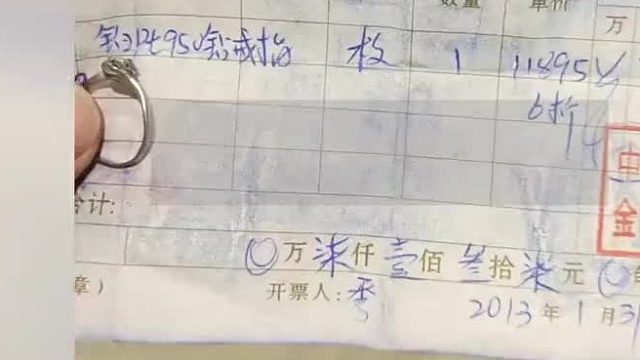 数量 单价 万
鉑Pt950钻戒指 枚 1 11895
6折
中
金
合计:
万柒仟壹佰叁拾柒元
章）
开票人:秀
2013年1月31